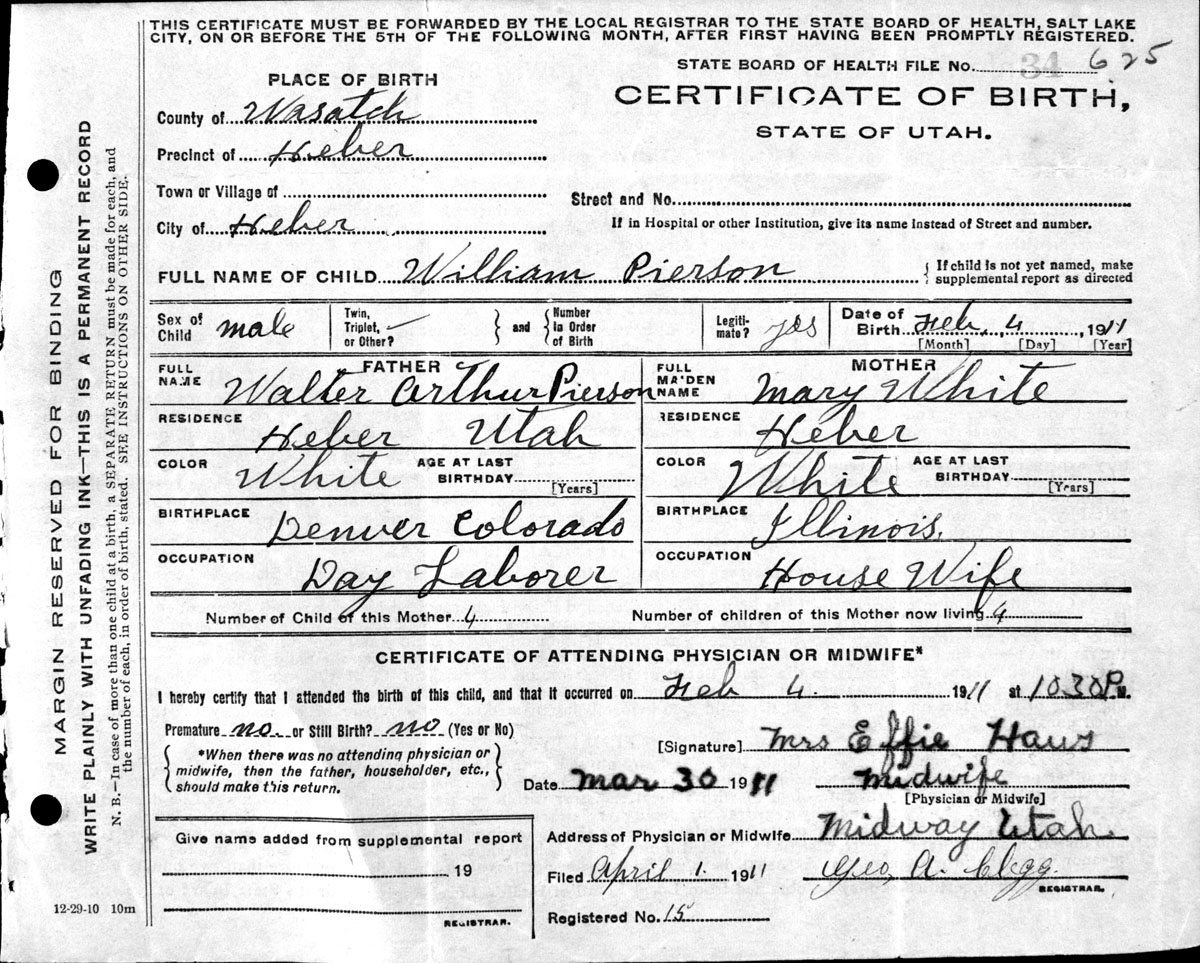 THIS CERTIFICATE MUST BE FORWARDED BY THE LOCAL REGISTRAR TO THE STATE BOARD OF HEALTH, SALT LAKE
CITY, ON OR BEFORE THE 5TH OF THE FOLLOWING MONTH, AFTER FIRST HAVING BEEN PROMPTLY REGISTERED.
STATE BOARD OF HEALTH FILE No. 34 625
PLACE OF BIRTH
CERTIFICATE OF BIRTH,
STATE OF UTAH.
County of Wasatch
Precinct of Heber
Town or Village of
Street and No.
City of Heber
If in Hospital or other Institution, give its name instead of Street and number.
FULL NAME OF CHILD William Pierson
{ If child is not yet named, make
supplemental report as directed
Sex of
Child male
Twin,
Triplet,
or Other? —
} and {
Number
in Order
of Birth
Legiti-
mate? yes
Date of
Birth Feb. 4, 1911
[Month] [Day] [Year]
FATHER
FULL
NAME Walter Arthur Pierson
RESIDENCE
Heber Utah
COLOR White AGE AT LAST
BIRTHDAY
[Years]
BIRTHPLACE
Denver Colorado
OCCUPATION
Day Laborer
MOTHER
FULL
MAIDEN
NAME Mary White
RESIDENCE
Heber
COLOR White AGE AT LAST
BIRTHDAY
[Years]
BIRTHPLACE
Illinois.
OCCUPATION
House Wife
Number of Child of this Mother 4 Number of children of this Mother now living 4
CERTIFICATE OF ATTENDING PHYSICIAN OR MIDWIFE*
I hereby certify that I attended the birth of this child, and that it occurred on Feb 4. 1911 at 1030 P.M.
Premature no. or Still Birth? no (Yes or No)
{ *When there was no attending physician or
midwife, then the father, householder, etc.,
should make this return. }
[Signature] Mrs Effie Haws
Date Mar 30 1911 Midwife
[Physician or Midwife]
Give name added from supplemental report
19
REGISTRAR.
Address of Physician or Midwife Midway Utah.
Filed April 1. 1911 Geo A. Clegg.
REGISTRAR.
Registered No. 15
12-29-10 10m
MARGIN RESERVED FOR BINDING
WRITE PLAINLY WITH UNFADING INK—THIS IS A PERMANENT RECORD
N. B.—In case of more than one child at a birth, a SEPARATE RETURN must be made for each, and
the number of each, in order of birth, stated. SEE INSTRUCTIONS ON OTHER SIDE.